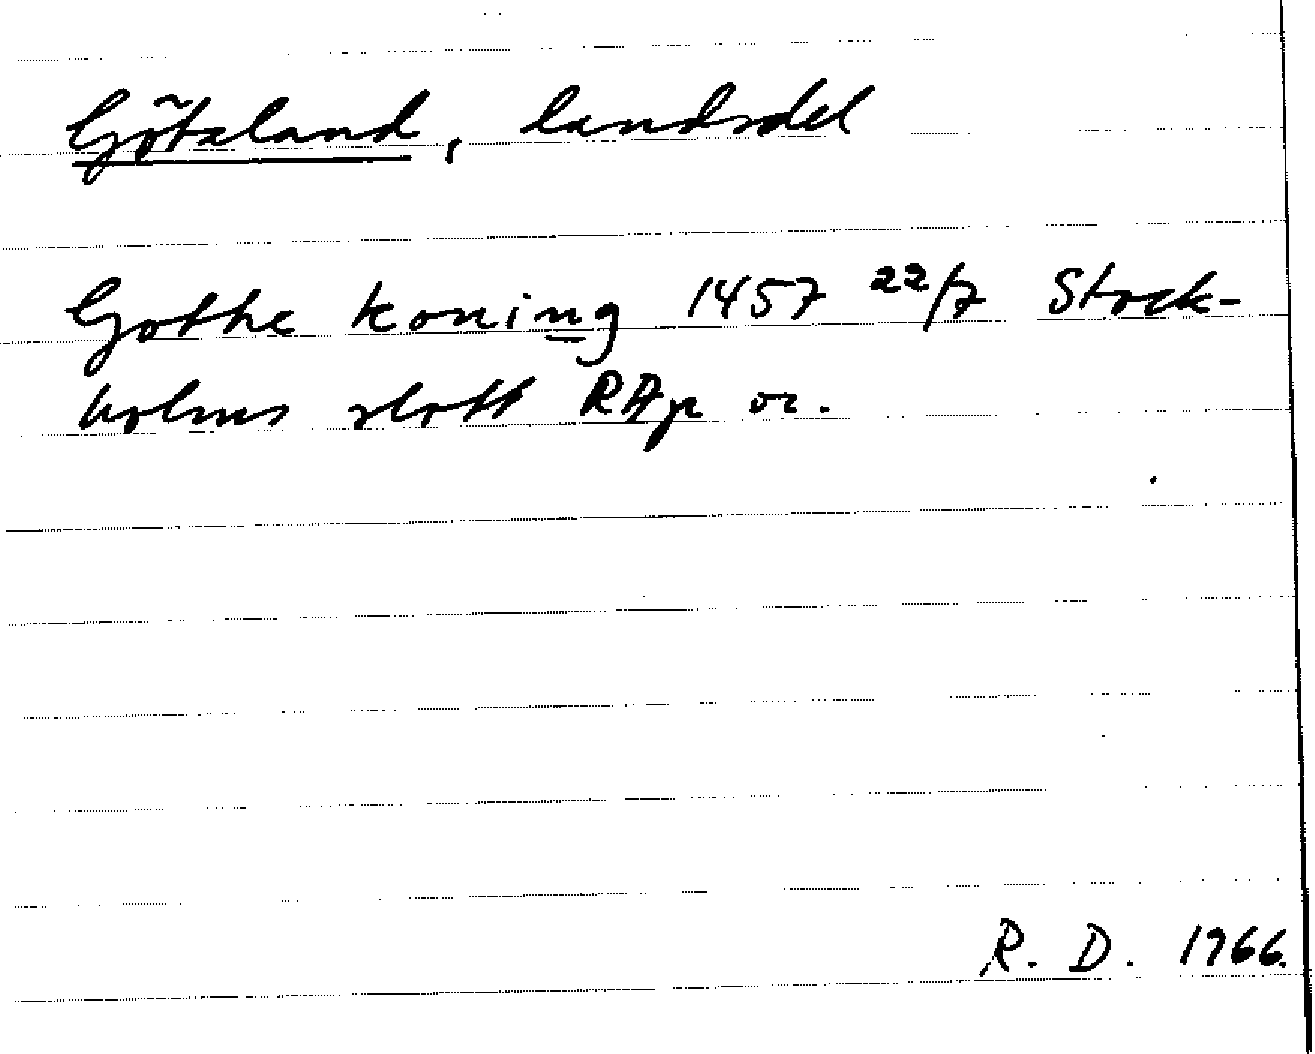 Götaland, landsdel
Gothe koning 1457 22/7 Stock-
holms slott RAp or.
R. D. 1966.